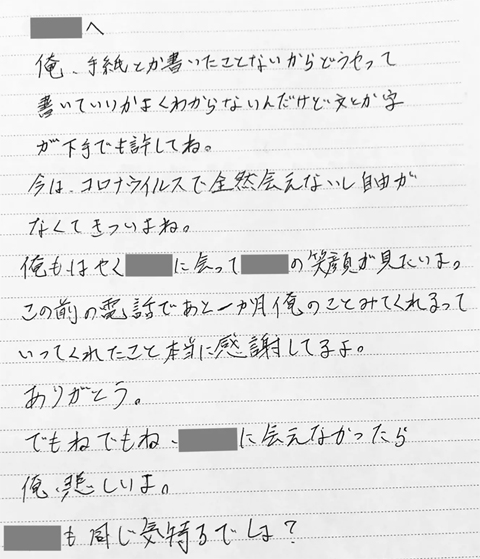 へ
俺、手紙とか書いたことないからどうやって
書いていいかよくわからないんだけど文とか字
が下手でも許してね。
今は、コロナウイルスで全然会えないし自由が
なくてきついよね。
俺もはやくに会っての笑顔が見たいよ。
この前の電話であと一か月俺のことみてくれるって
いってくれたこと本当に感謝してるよ。
ありがとう。
でもねでもね、に会えなかったら
俺、悲しいよ。
も同じ気持ちでしょ?